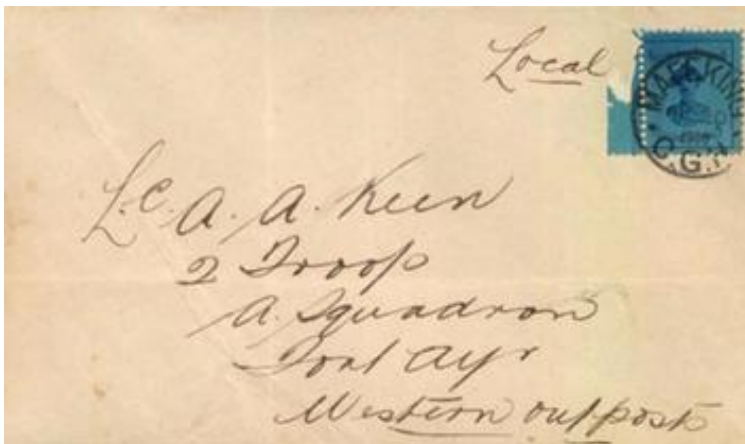 Local
MAFEKING
C.G.H.
L.C. A. A. Keen
2 Troop
A. Squadron
Fort Ayr
Western outposts